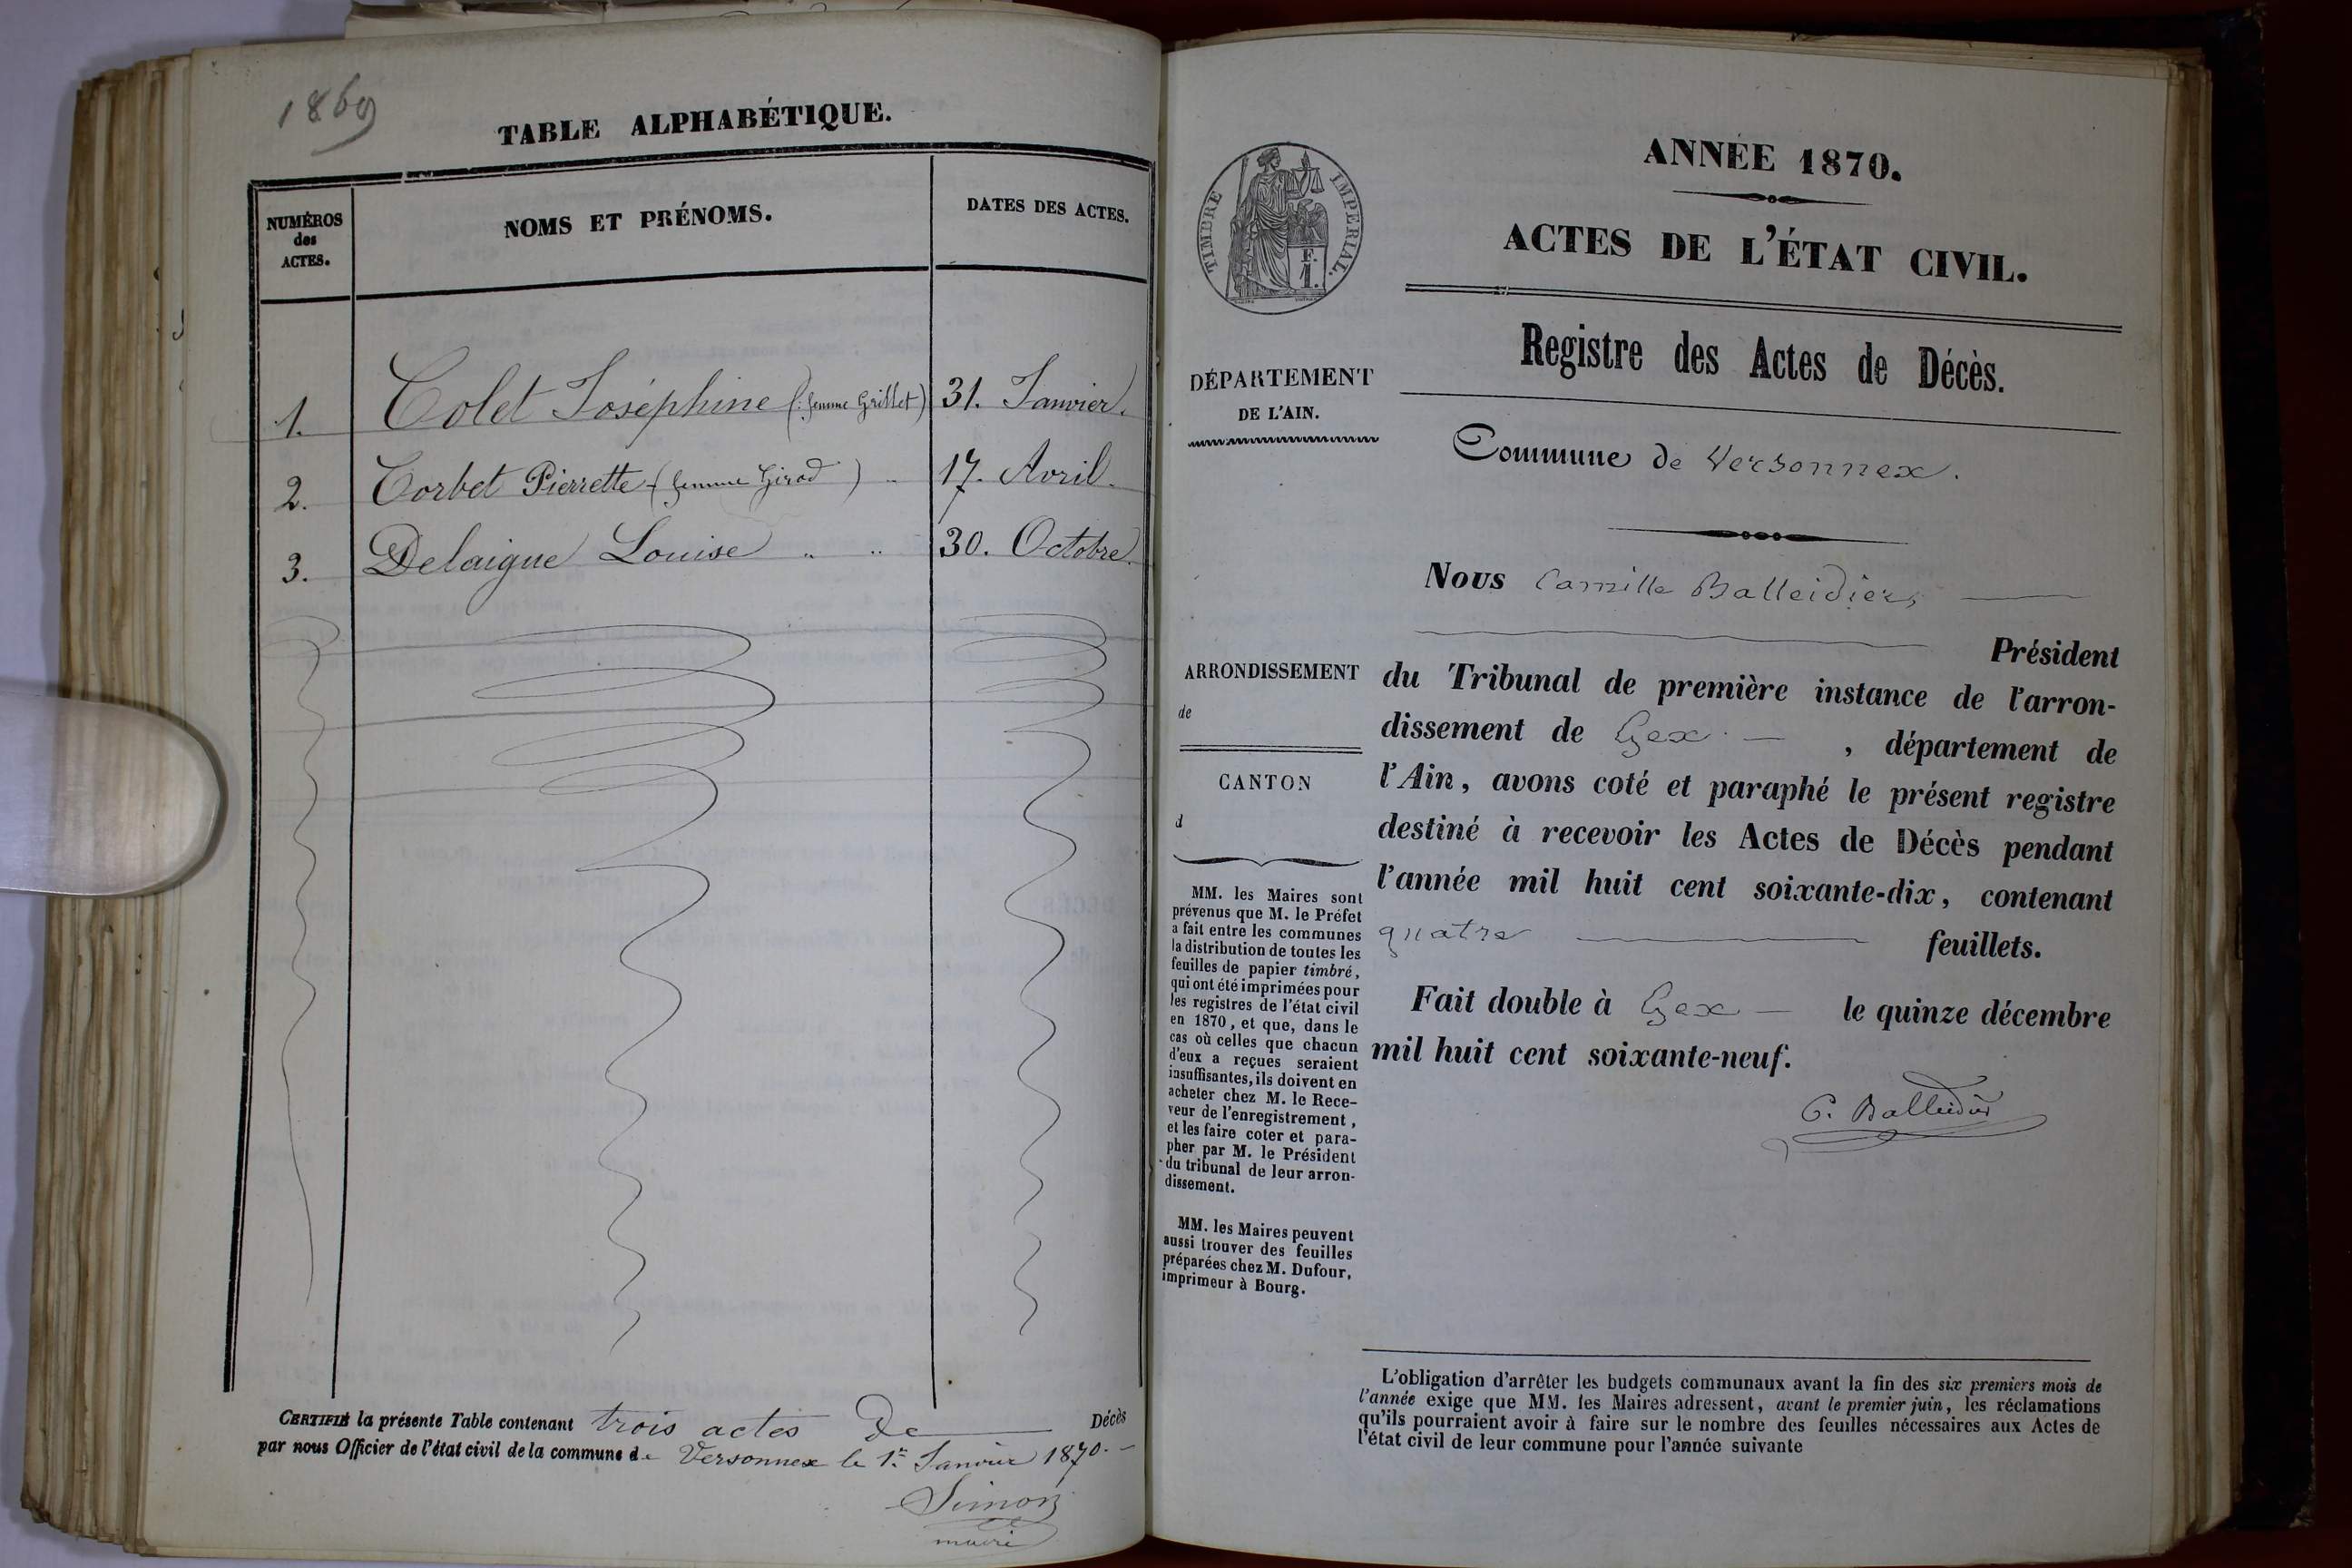 1869
TABLE ALPHABÉTIQUE.
NUMÉROS
des
ACTES.
NOMS ET PRÉNOMS.
DATES DES ACTES.
1. Colet Joséphine (femme Grillet) 31. Janvier.
2. Corbet Pierrette (femme Girod) 17. Avril.
3. Delaigue Louise 30. Octobre.
CERTIFIÉ la présente Table contenant trois actes De Décès
par nous Officier de l'état civil de la commune de Versonnex le 1er Janvier 1870.
Simon
maire
TIMBRE IMPÉRIAL.
F.
1.
DÉPARTEMENT
DE L'AIN.
ARRONDISSEMENT
de
CANTON
d
MM. les Maires sont
prévenus que M. le Préfet
a fait entre les communes
la distribution de toutes les
feuilles de papier timbré,
qui ont été imprimées pour
les registres de l'état civil
en 1870, et que, dans le
cas où celles que chacun
d'eux a reçues seraient
insuffisantes, ils doivent en
acheter chez M. le Rece-
veur de l'enregistrement,
et les faire coter et para-
pher par M. le Président
du tribunal de leur arron-
dissement.
MM. les Maires peuvent
aussi trouver des feuilles
préparées chez M. Dufour,
imprimeur à Bourg.
ANNÉE 1870.
ACTES DE L'ÉTAT CIVIL.
Registre des Actes de Décès.
Commune de Versonnex.
Nous Camille Balleidier,
Président
du Tribunal de première instance de l'arron-
dissement de Gex, département de
l'Ain, avons coté et paraphé le présent registre
destiné à recevoir les Actes de Décès pendant
l'année mil huit cent soixante-dix, contenant
quatre feuillets.
Fait double à Gex le quinze décembre
mil huit cent soixante-neuf.
C. Balleidier
L'obligation d'arrêter les budgets communaux avant la fin des six premiers mois de
l'année exige que MM. les Maires adressent, avant le premier juin, les réclamations
qu'ils pourraient avoir à faire sur le nombre des feuilles nécessaires aux Actes de
l'état civil de leur commune pour l'année suivante